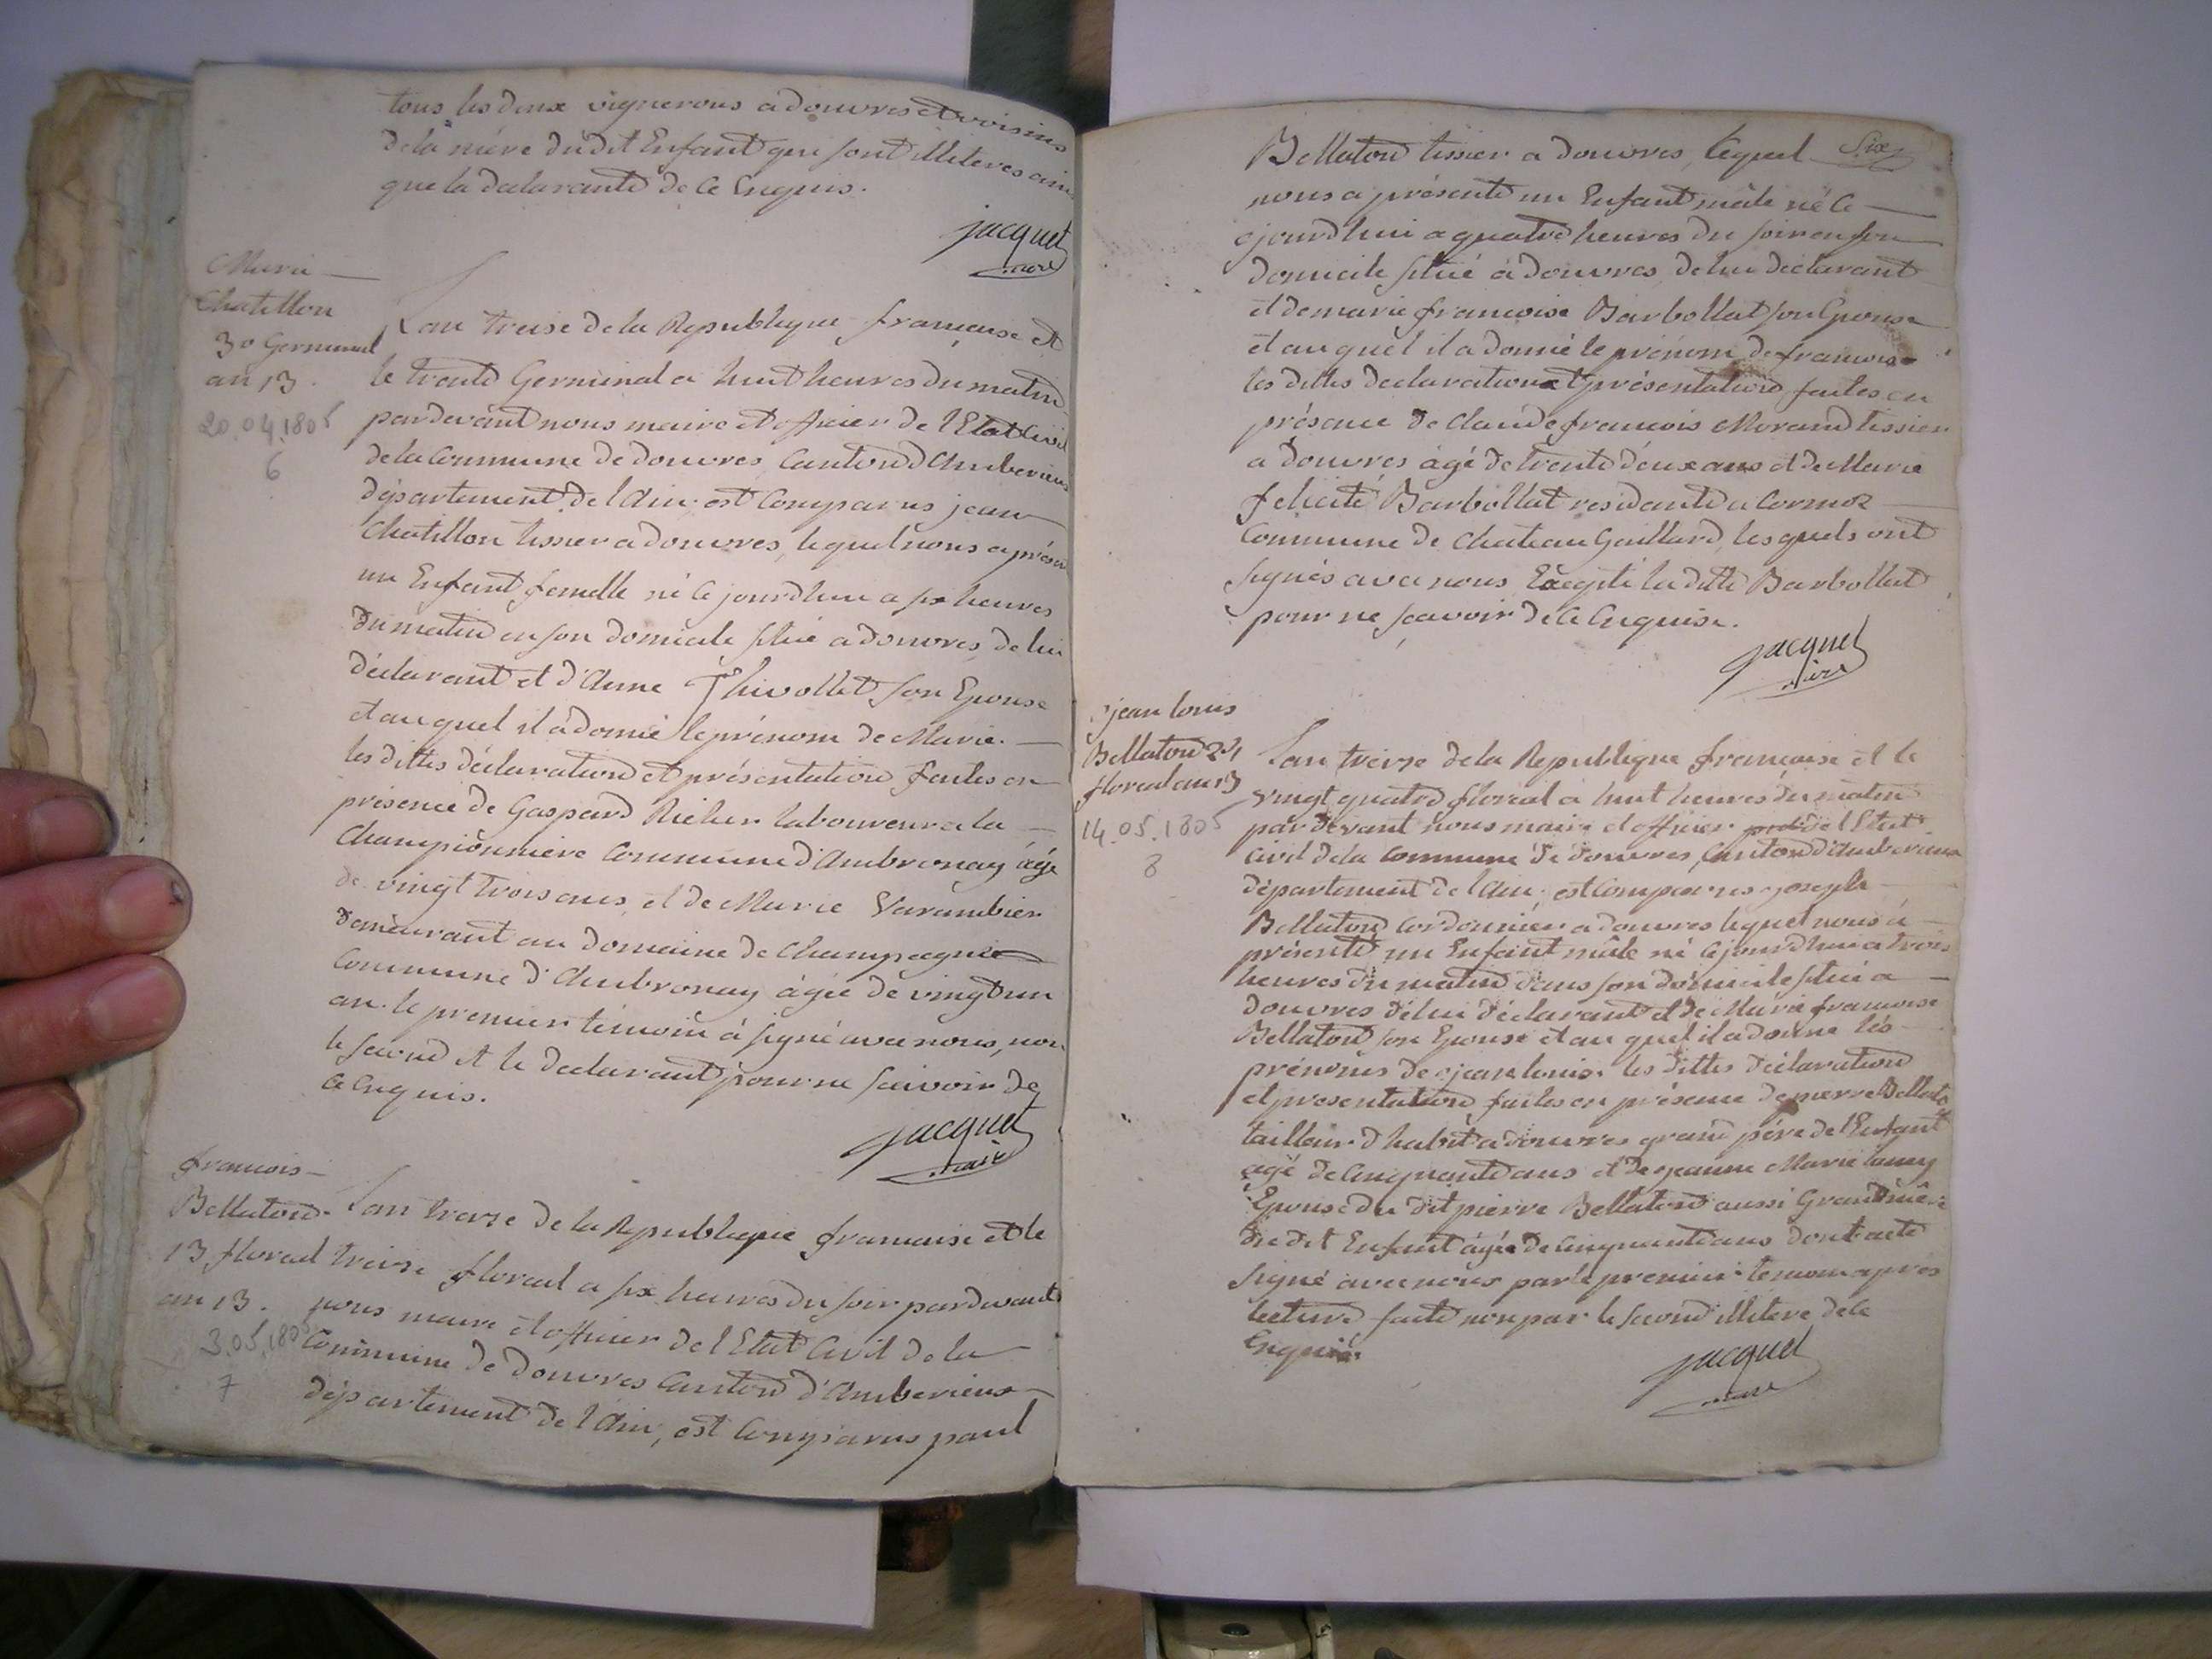 tous les deux vignerons a douvres et voisins
de la mére du dit Enfant qui sont illiteres ainsi
que la declarante de ce Enquis.
jacquet
maire
Marie
Chatillon
30 Germinal
an 13.
20.04.1805
6
Lan treise de la Republique francaise et
le trente Germinal a huit heures du matin
pardevant nous maire et officier de l'Etat Civil
de la Commune de douvres, Canton d'Amberieux
département de l'Ain, est Comparus jean
Chatillon tissier a douvres, lequel nous a présenté
un Enfant femelle né ce jourdhui a six heures
du matin en son domicile situé a douvres, de lui
déclarant et d'Anne Thivollet son Epouse
et au quel il a donné le prénom de Marie.
les dittes déclaration et présentation faites en
présence de Gaspard Richer laboureur a la
Championniere Commune d'Ambronay âgé
de vingt trois ans, et de Marie Varambier
demeurant au domaine de Champagne
Commune d'Ambronay âgée de vingt un
an. le premier témoin à signé avec nous, non
le second et le declarant pour ne scavoir de
ce Enquis.
jacquet
maire
francois
Bellaton
13 floreal
an 13.
3.05.1805
7
Lan treize de la Republique francaise et le
treize floreal a six heures du soir pardevant
nous maire et officier de l'Etat Civil de la
Commune de douvres Canton d'Amberieux
département de l'Ain, est Comparus paul
Six
Bellaton tissier a douvres, lequel
nous a présenté un Enfant mâle né ce
jourdhui a quatre heures du soir en son
domicile situé à douvres, de lui déclarant
et de marie francoise Barbollat son Epouse
et au quel il a donné le prénom de francois
les dittes declaration et présentation faites en
présence de Claude francois Morand tissier
a douvres âgé de trente deux ans et de Marie
felicité Barbollat residante a Cormoz
Commune de Chateau Gaillard, les quels ont
signés avec nous Excepté la ditte Barbollat
pour ne scavoir de ce Enquise.
jacquet
maire
jean louis
Bellaton 24
floreal an 13
14.05.1805
8
Lan treize de la Republique francaise et le
vingt quatre floreal a huit heures du matin
par devant nous maire et officier de l'Etat
Civil de la Commune de douvres, Canton d'Amberieux
département de l'Ain, est Comparus joseph
Bellaton Cordonnier a douvres lequel nous a
présenté un Enfant mâle né ce jourdhui a trois
heures du matin dans son domicile situé a
douvres de lui déclarant et de Marie francoise
Bellaton son Epouse et au quel il a donné les
prénoms de jean louis. les dittes déclaration
et presentation faites en présence de pierre Bellaton
tailleur d'habit a douvres grand pére de l'Enfant
agé de Cinquante ans et de jeanne Marie
Epouse du dit pierre Bellaton aussi Grand mére
du dit Enfant âgée de Cinquante ans dont acte
signé avec nous par le premier temoin apres
lecture faite non par le second illitere de ce
Enquis.
jacquet
maire